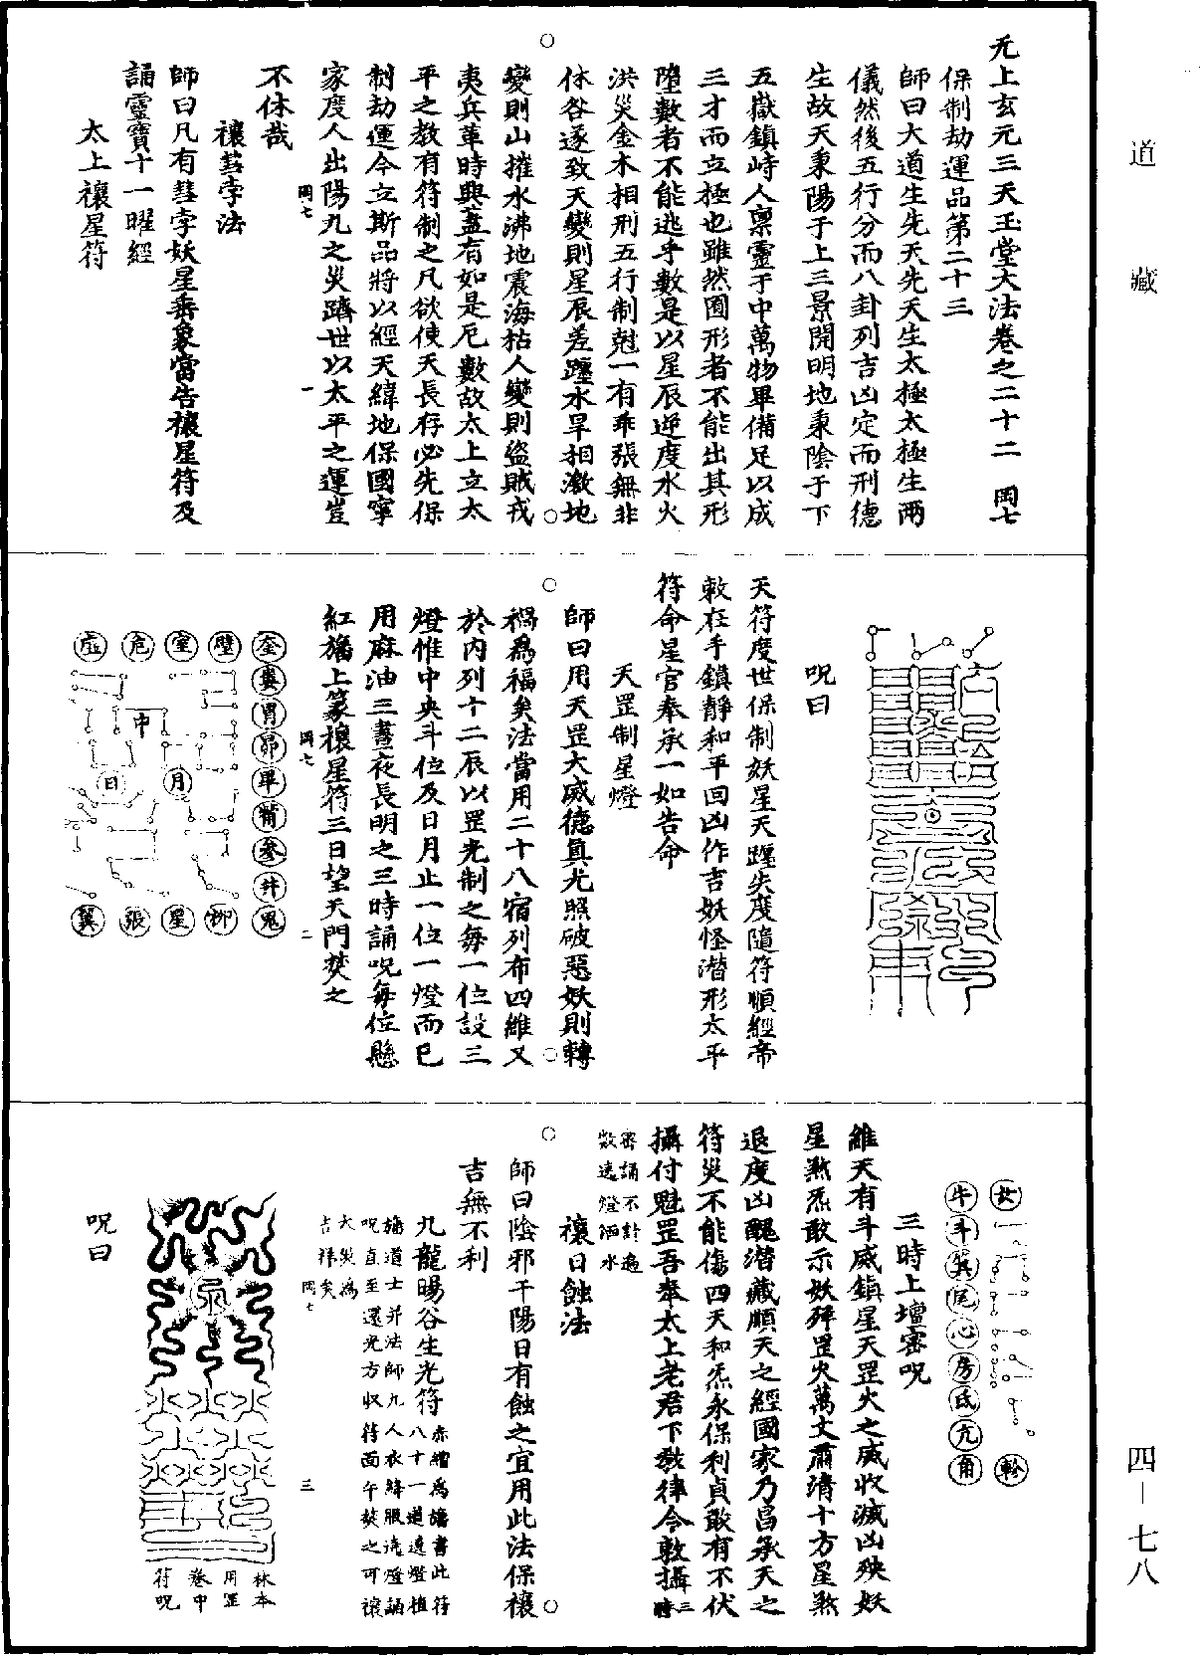 道藏
四－七八
无上玄元三天玉堂大法卷之二十二　岡七
保制劫運品第二十三
師曰大道生先天先天生太極太極生兩
儀然後五行分而八卦列吉凶定而刑德
生故天秉陽于上三景開明地秉陰于下
五嶽鎮峙人稟靈于中萬物畢備足以成
三才而立極也雖然囿形者不能出其形
墮數者不能逃乎數是以星辰逆度水火
洪災金木相刑五行制尅一有乖張無非
休咎遂致天變則星辰差躔水旱相激地
變則山摧水沸地震海枯人變則盜賊戎
夷兵革時興蓋有如是厄數故太上立太
平之教有符制之凡欲使天長存必先保
制劫運今立斯品將以經天緯地保國寧
家度人出陽九之災躋世以太平之運豈
不休哉
岡七　一
禳彗孛法
師曰凡有彗孛妖星垂象當告禳星符及
誦靈寶十一曜經
太上禳星符
呪曰
天符度世保制妖星天躔失度隨符順經帝
敕在手鎮静和平回凶作吉妖怪潛形太平
符命星官奉承一如告命
天罡制星燈
師曰用天罡大威德真光照破惡妖則轉
禍爲福矣法當用二十八宿列布四維又
於内列十二辰以罡光制之每一位設三
燈惟中央斗位及日月止一位一燈而已
用麻油三晝夜長明之三時誦呪每位懸
紅旛上篆禳星符三日望天門焚之
岡七　二
奎婁胃昴畢觜參井鬼
壁　柳
室　星
危　張
虛　翼
中
月　日
女　軫
牛斗箕尾心房氐亢角
三時上壇密呪
維天有斗威鎮星天罡火之威收滅凶殃妖
星煞炁敢示妖殍罡火萬丈肅清十方星煞
退度凶醜潛藏順天之經國家乃昌承天之
符災不能傷四天和炁永保利貞敢有不伏
攝付魁罡吾奉太上老君下敎律令敕攝三時
密誦不計遍
數遶燈洒水
禳日蝕法
師曰陰邪干陽日有蝕之宜用此法保禳
吉無不利
九龍暘谷生光符赤繒爲旛書此符
八十一道遶燈植
旛道士并法師九人衣絳服遶燈誦
呪直至還光方收符面午焚之可禳
大災爲
吉祥矣
岡七　三
林本
用罡
卷中
符呪
呪曰